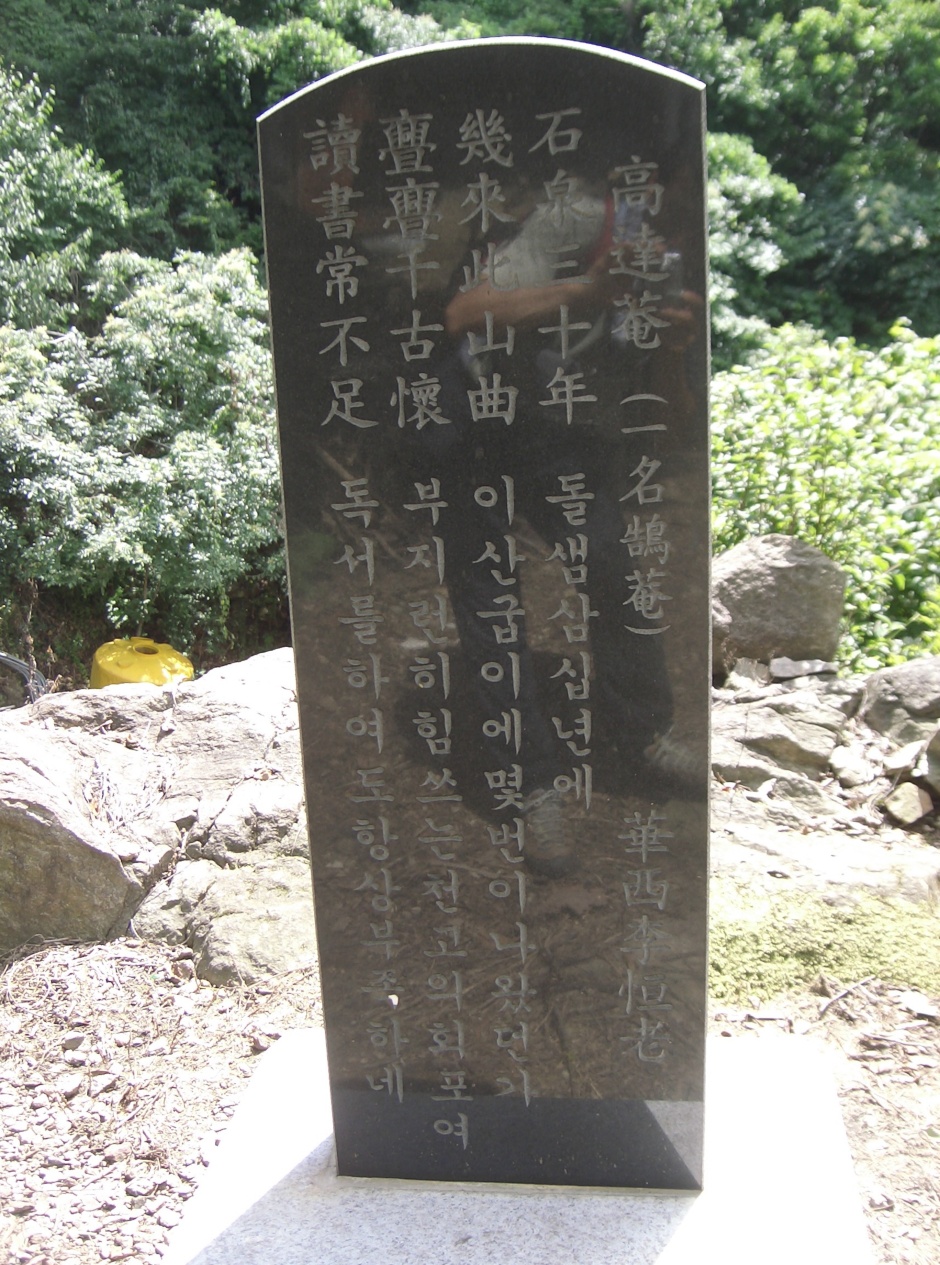 高達菴 (一名鵠菴) 華西李恒老
石泉三十年 돌샘삼십년에
幾來此山曲 이산굽이에몇번이나왔던가
亹亹千古懷 부지런히힘쓰는천고의회포여
讀書常不足 독서를하여도항상부족하네